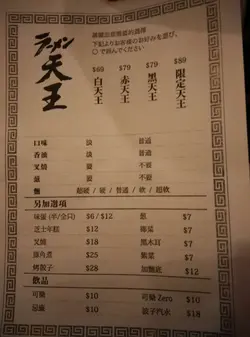 ラーメン
天王
下記よりお客様のお好みを選び、
○で囲んでください
$69 $79 $79 $89
白天王 赤天王 黑天王 限定天王
口味 淡 普通
香油 淡 普通
叉燒 要 不要
葱 要 不要
麵 超硬 / 硬 / 普通 / 軟 / 超軟
另加選項
味蛋 (半/全只) $6 / $12 葱 $7
芝士年糕 $12 $7
叉燒 $18 黑木耳 $7
豚角煮 $25 紫菜 $7
烤餃子 $28 加麵底 $12
飲品
可樂 $10 可樂 Zero $10
忌廉 $10 波子汽水 $18